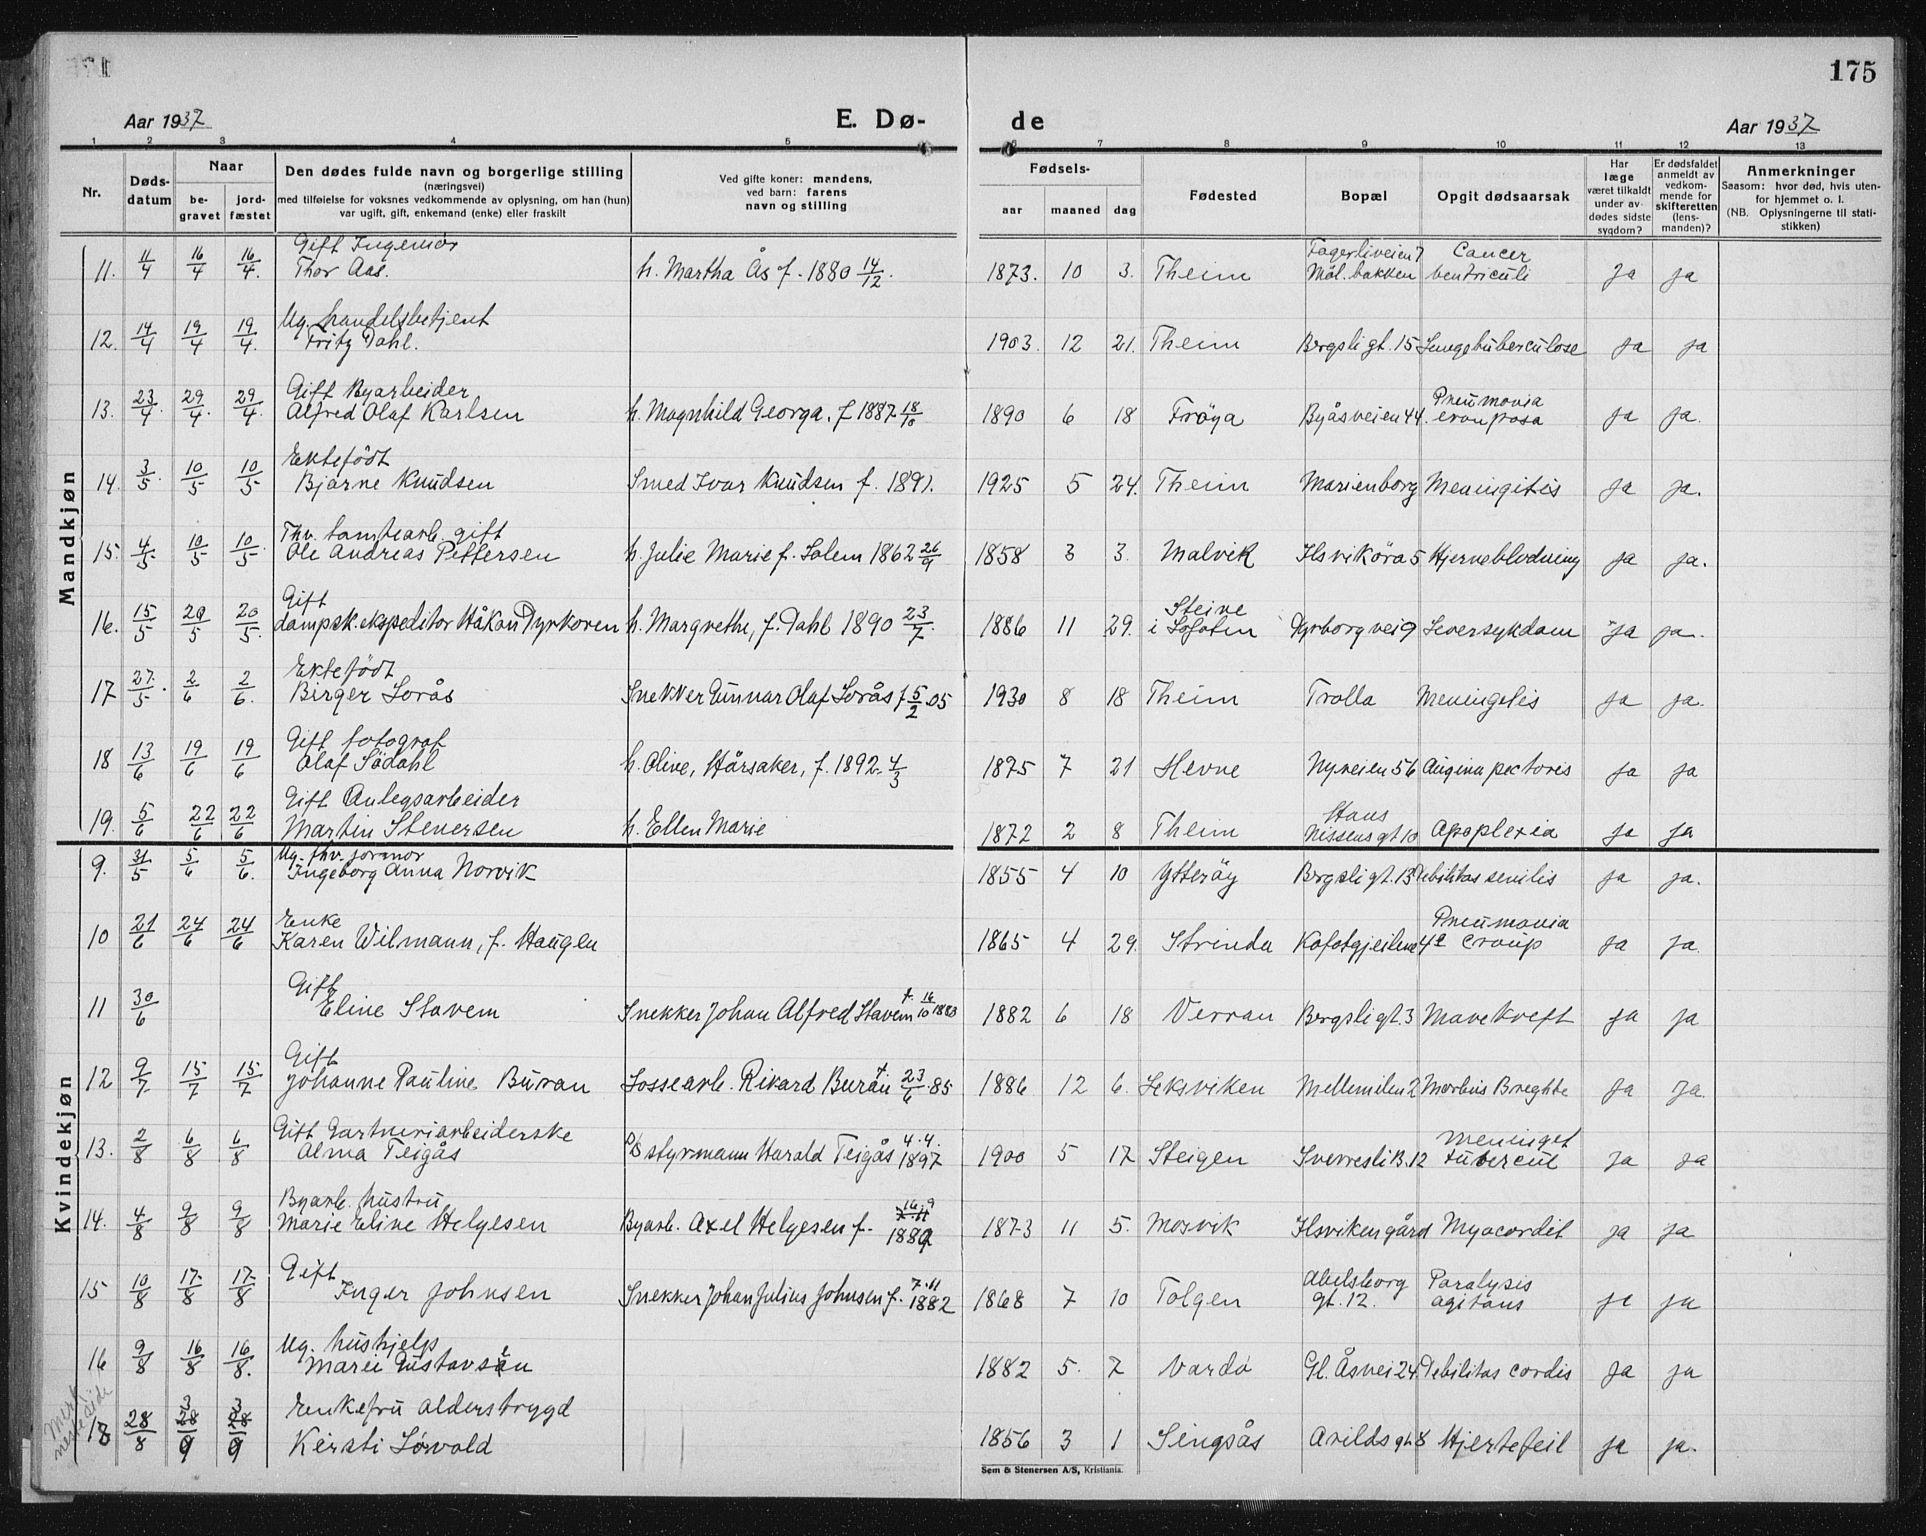 175
Aar 1937
E. Dø-
de
Aar 1937
1 2 3 4 5 6 7 8 9 10 11 12 13
Nr.
Døds-
datum
Naar
be-
gravet
jord-
fæstet
Den dødes fulde navn og borgerlige stilling
(næringsvei)
med tilføielse for voksnes vedkommende av oplysning, om han (hun)
var ugift, gift, enkemand (enke) eller fraskilt
Ved gifte koner: mandens,
ved barn: farens
navn og stilling
Fødsels-
aar maaned dag
Fødested
Bopæl
Opgit dødsaarsak
Har
læge
været tilkaldt
under av-
dødes sidste
sygdom?
Er dødsfaldet
anmeldt av
vedkom-
mende for
skifteretten
(lens-
manden)?
Anmerkninger
Saasom: hvor død, hvis uten-
for hjemmet o. l.
(NB. Oplysningerne til stati-
stikken)
Mandkjøn
Gift Ingeniør Fagerliveien 7 Cancer
11. 11/4 16/4 16/4. Thor Aas. h. Martha Ås f. 1880 14/12. 1873. 10 3. Theim Møl.bakken ventriculi Ja ja
Ug. handelsbetjent
12. 14/4 19/4 19/4. Fritz Dahl. 1903. 12 21. Theim Bergsligt. 15 Lungetuberculose ja ja
Gift Byarbeider Pneumonia
13. 23/4 29/4. 29/4. Alfred Olaf Karlsen h. Magnhild Georga. f 1887 18/10 1890 6 18 Frøya Byåsveien 44. crouposa ja ja.
Ektefødt
14. 3/5. 10/5 10/5 Bjarne Knudsen Smed Ivar Knudsen f. 1891. 1925 5 24. Theim Marienborg Meningitis ja ja.
Thv. tomtearb. gift
15. 4/5 10/5 10/5. Ole Andreas Pettersen h. Julie Marie f. Solem 1862 26/9 1858 3 3. Malvik Ilsvikøra 5 Hjerneblødning ja ja.
Gift Steine
16. 15/5 20/5 20/5. dampsk.ekspeditor Håkon Dyrkoren h. Margrethe, f. Dahl 1890 23/7. 1886 11 29. i Lofoten Dyrborgvei 9 Leversykdom ja ja.
Ektefødt
17 27/5. 2/6 2/6. Birger Sørås Snekker Gunnar Olaf Sørås f 5/2 05 1930 8 18 Theim Trolla Meningitis ja ja.
Gift fotograf
18 13/6 19/6 19/6 Olaf Södahl h. Oline, Hårsaker, f. 1892 4/3 1875 7 21 Hevne Nyveien 56 Angina pectoris ja ja
Gift Anlegsarbeider Hans
19. 5/6 22/6 22/6 Martin Stenersen h. Ellen Marie 1872 2 8 Theim Nissensgt 10 Apoplexia ja ja
Kvindekjøn
Ug. fhv. jormor
9. 31/5 5/6 5/6. Ingeborg Anna Norvik 1855 4 10 Ytterøy Bergsligt. 13 Debilitas senilis ja ja.
Enke Pneumonia
10 21/6 24/6 24/6 Karen Wilmann, f. Haugen 1865 4 29. Strinda Kofotgjeilene 4a croup ja ja.
Gift
11 30/6 Eline Stavem Snekker Johan Alfred Stavem f. 16/10 1883 1882 6 18 Verran Bergsligt. 3 Mavekreft ja ja
Gift
12 9/7 15/7 15/7 Johanne Pauline Buran Lossearb. Rikard Buran f 23/6 85 1886 12 6. Leksviken Mellemilen 2 Morbus Breghte ja ja.
Gift Gartneriarbeiderske 4.4. Meninget
13. 2/8 6/8 6/8 Alma Teigås D/S styrmann Harald Teigås 1897 1900 5 17 Steigen Sverresli B. 12 tubercul ja ja
Byarb. hustru 16.9
14. 4/8 9/8 9/8 Marie Eline Helgesen Byarb. Axel Helgesen f. 1889 1873 11 5. Mosvik Ilsvikengård Myocordit ja ja
Gift 7.11 Abelsborg Paralysis
15 10/8 17/8 17/8 Inger Johnsen Snekker Johan Julius Johnsen f. 1882 1868 7 10 Tolgen gt. 12. agitans ja ja
Ug. hushjelp
16 9/8 16/8 16/8. Marie Gustavsen 1882 5. 7 Vardø Gl. Åsvei 24 Debilitas cordis ja ja
Merk
neste side
Enkefru alderstrygd
18 28/8 3/9 3/9 Kersti Sørvold 1856 3 1 Singsås Arildsgt 8 Hjertefeil ja ja.
Sem & Stenersen A/S, Kristiania.